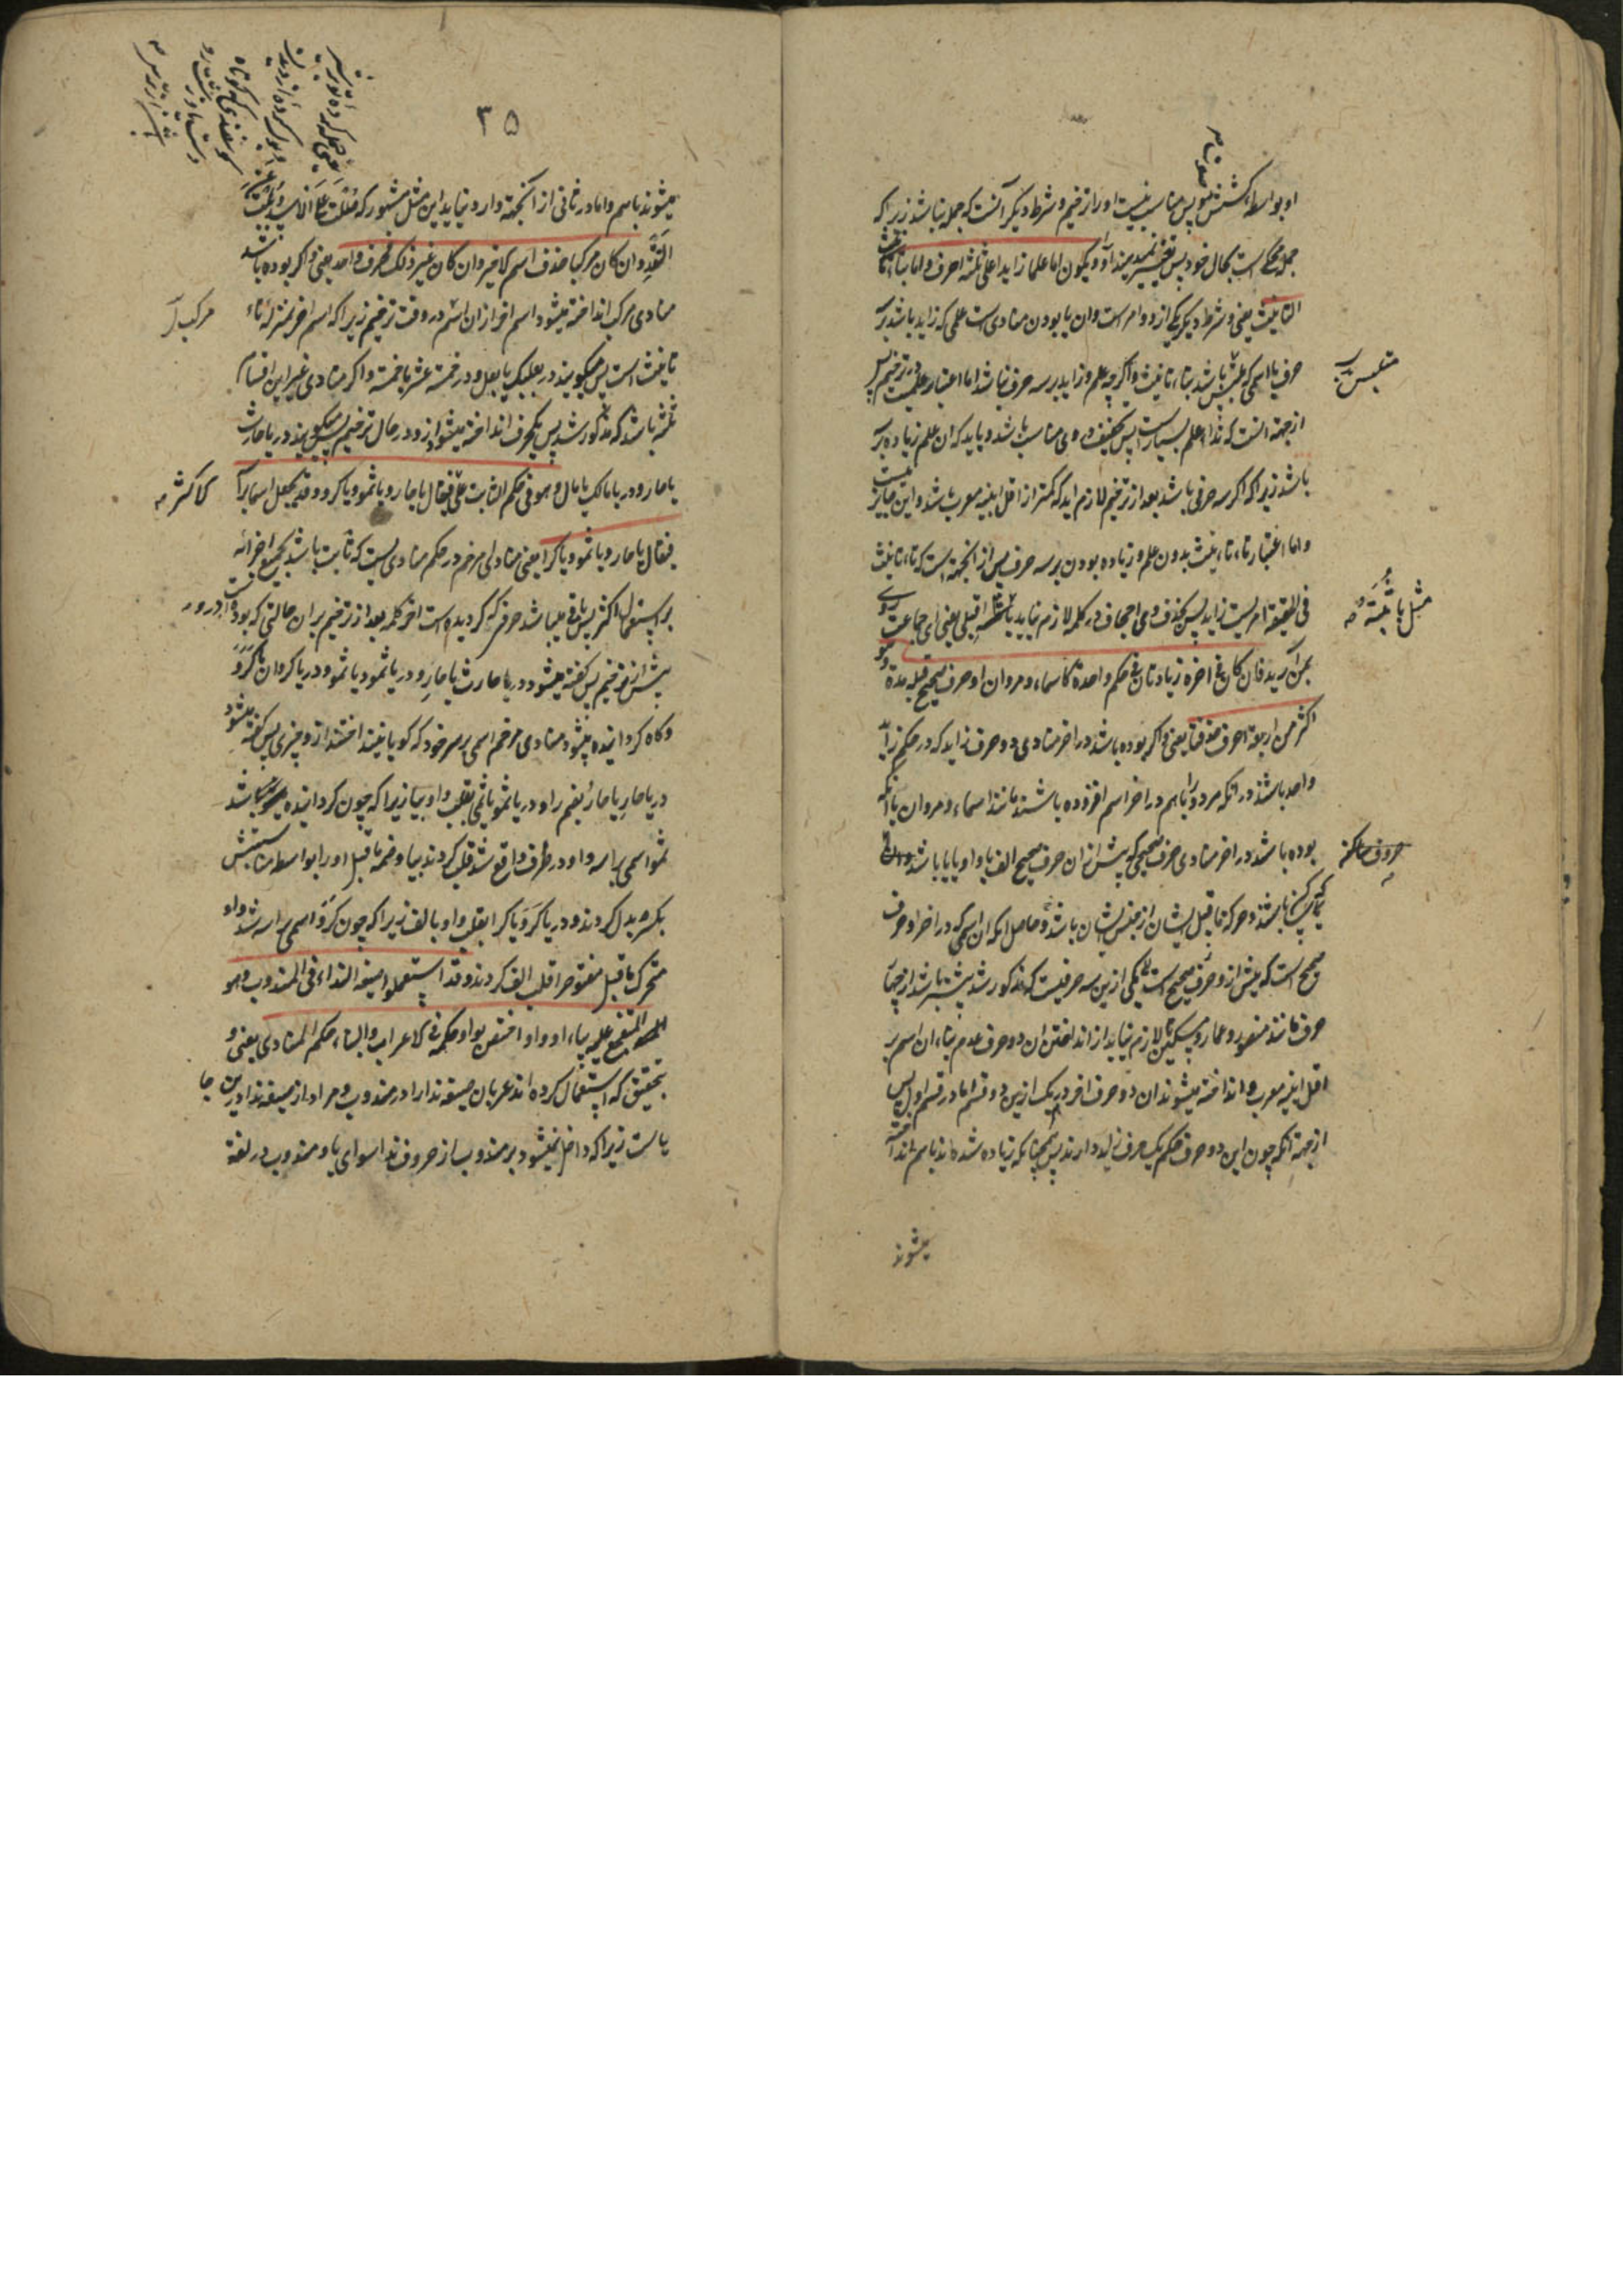 او بواسطه کشش صوت پس مناسب نیست او را ترخیم و شرط دیگر آنست که جمله نباشد زیرا که
جمله محکی است بحال خود پس تغییر نمیدهند او را و یکون اما علما زایدا علی ثلثة احرف و اما بتاء
التانیث یعنی و شرط دیگر یکی از دو امر است و ان یا بودن منادی است علمی که زاید باشد بر سه
حرف یا اسمی که ملتبس باشد بتاء تانیث و اگرچه علم و زاید بر سه حرف نباشد اما اعتبار علمیت در ترخیم پس
از جهة انست که نداء علم بسیار است پس تخفیف وی مناسب باشد و باید که ان علم زیاده بر سه
باشد زیرا که اگر سه حرفی باشد بعد از ترخیم لازم اید که کمتر از اقل ابنیه معرب باشد و این جایز نیست
و اما اعتبار تاء تانیث بدون علم و زیاده بودن بر سه حرف پس از انجهة است که تاء تانیث
فی الحقیقة امریست زاید پس بحذف وی اجحاف در کلمه لازم نیاید یا ثبة اقبلی یعنی ای جماعت روی
بمن آرید فان کان فی اخره زیادتان فی حکم واحدة کاسماء و مروان او حرف صحیح قبله مدة و هو
اکثر من اربعة احرف حذفتا یعنی و اگر بوده باشد در اخر منادی دو حرف زاید که در حکم زاید
واحد باشند در انکه هر دو را باهم در اخر اسم افزوده باشند مانند اسماء و مروان یا انکه
بوده باشد در اخر منادی حرف صحیحی که پیش از ان حرف صحیح الف یا واو یا یا باشد
که ساکن باشند و حرکه ماقبل ایشان از جنس ایشان باشد و حاصل انکه ان اسمی که در اخر او حرف
صحیح است که پیش از و حرف صحیح است یکی ازین سه حرفیست که مذکور شد بیشتر باشد از چهار
حرف مانند منصور و عمار و مسکین تا لازم نیاید از انداختن ان دو حرف عدم بناء ان اسم بر
اقل ابنیه معرب و انداخته میشوند ان دو حرف اخر در هر یک ازین دو قسم اما در قسم اول پس
از جهة انکه چون این دو حرف حکم یک حرف زاید دارند پس همچنانکه زیاده شده اند باهم انداخته
میشوند
حروف ساکنه
۳۵
میشوند باهم و اما در ثانی از آنجهة وارد نیاید این مثل مشهور که صلت علی الاسد و بلت عن
النقد و ان کان مرکبا حذف اسم الاخیر و ان کان غیر ذلک فحرف واحد یعنی و اگر بوده باشد
منادی مرکب انداخته میشود اسم اخر از ان اسم در وقت ترخیم زیرا که اسم اخر بمنزله تاء
تانیث است پس میگویند در بعلبک یا بعل و در خمسة عشر یا خمسة و اگر منادی غیر این اقسام
ثلثه باشد که مذکور شد پس یکحرف انداخته میشود ازو در حال ترخیم پس میگویند در یا حارث
یا حار و در یا مالک یا مال و هو فی حکم الثابت علی الاکثر فیقال یا حار و یا ثمو و یا کرو و قد یجعل اسما براسه
فیقال یا حار و یا ثمی و یا کرا یعنی منادای مرخم در حکم منادی ایست که ثابت باشد بجمیع اجزائه
بر استعمال اکثر پس باقی میباشد حرفی که گردیده است اخر کلمه بعد از ترخیم بران حالتی که بوده است
پیش از ترخیم پس گفته میشود در یا حارث یا حار و در یا ثمود یا ثمو و در یا کروان یا کرو
و کاه گردانیده میشود منادی مرخم اسمی بر سر خود که گویا نینداختند ازو چیزی پس گفته میشود
در یا حار یا حار بضم راء و در یا ثمو یا ثمی بقلب واو بیا زیرا که چون گردانیده شد
ثمو اسمی براسه واو در طرف واقع شد قلب کردند بیا و ضمه ماقبل او را بواسطه مناسبتش
بکسره بدل کردند و در یا کرو یا کرا بقلب واو بالف زیرا که چون کرو اسمی براسه شد واو
متحرک ماقبل مفتوح را قلب بالف کردند و قد استعملوا صیغة النداء فی المندوب و هو
المتفجع علیه بیاء او واو و اختص بوا و حکمه فی الاعراب و البناء حکم المنادی یعنی و
بتحقیق که استعمال کرده اند عربان صیغه ندا را در مندوب و مراد از صیغه ندا درین جا
یا است زیرا که داخل نمیشود بر مندوب از حروف ندا سوای یا و مندوب در لغة